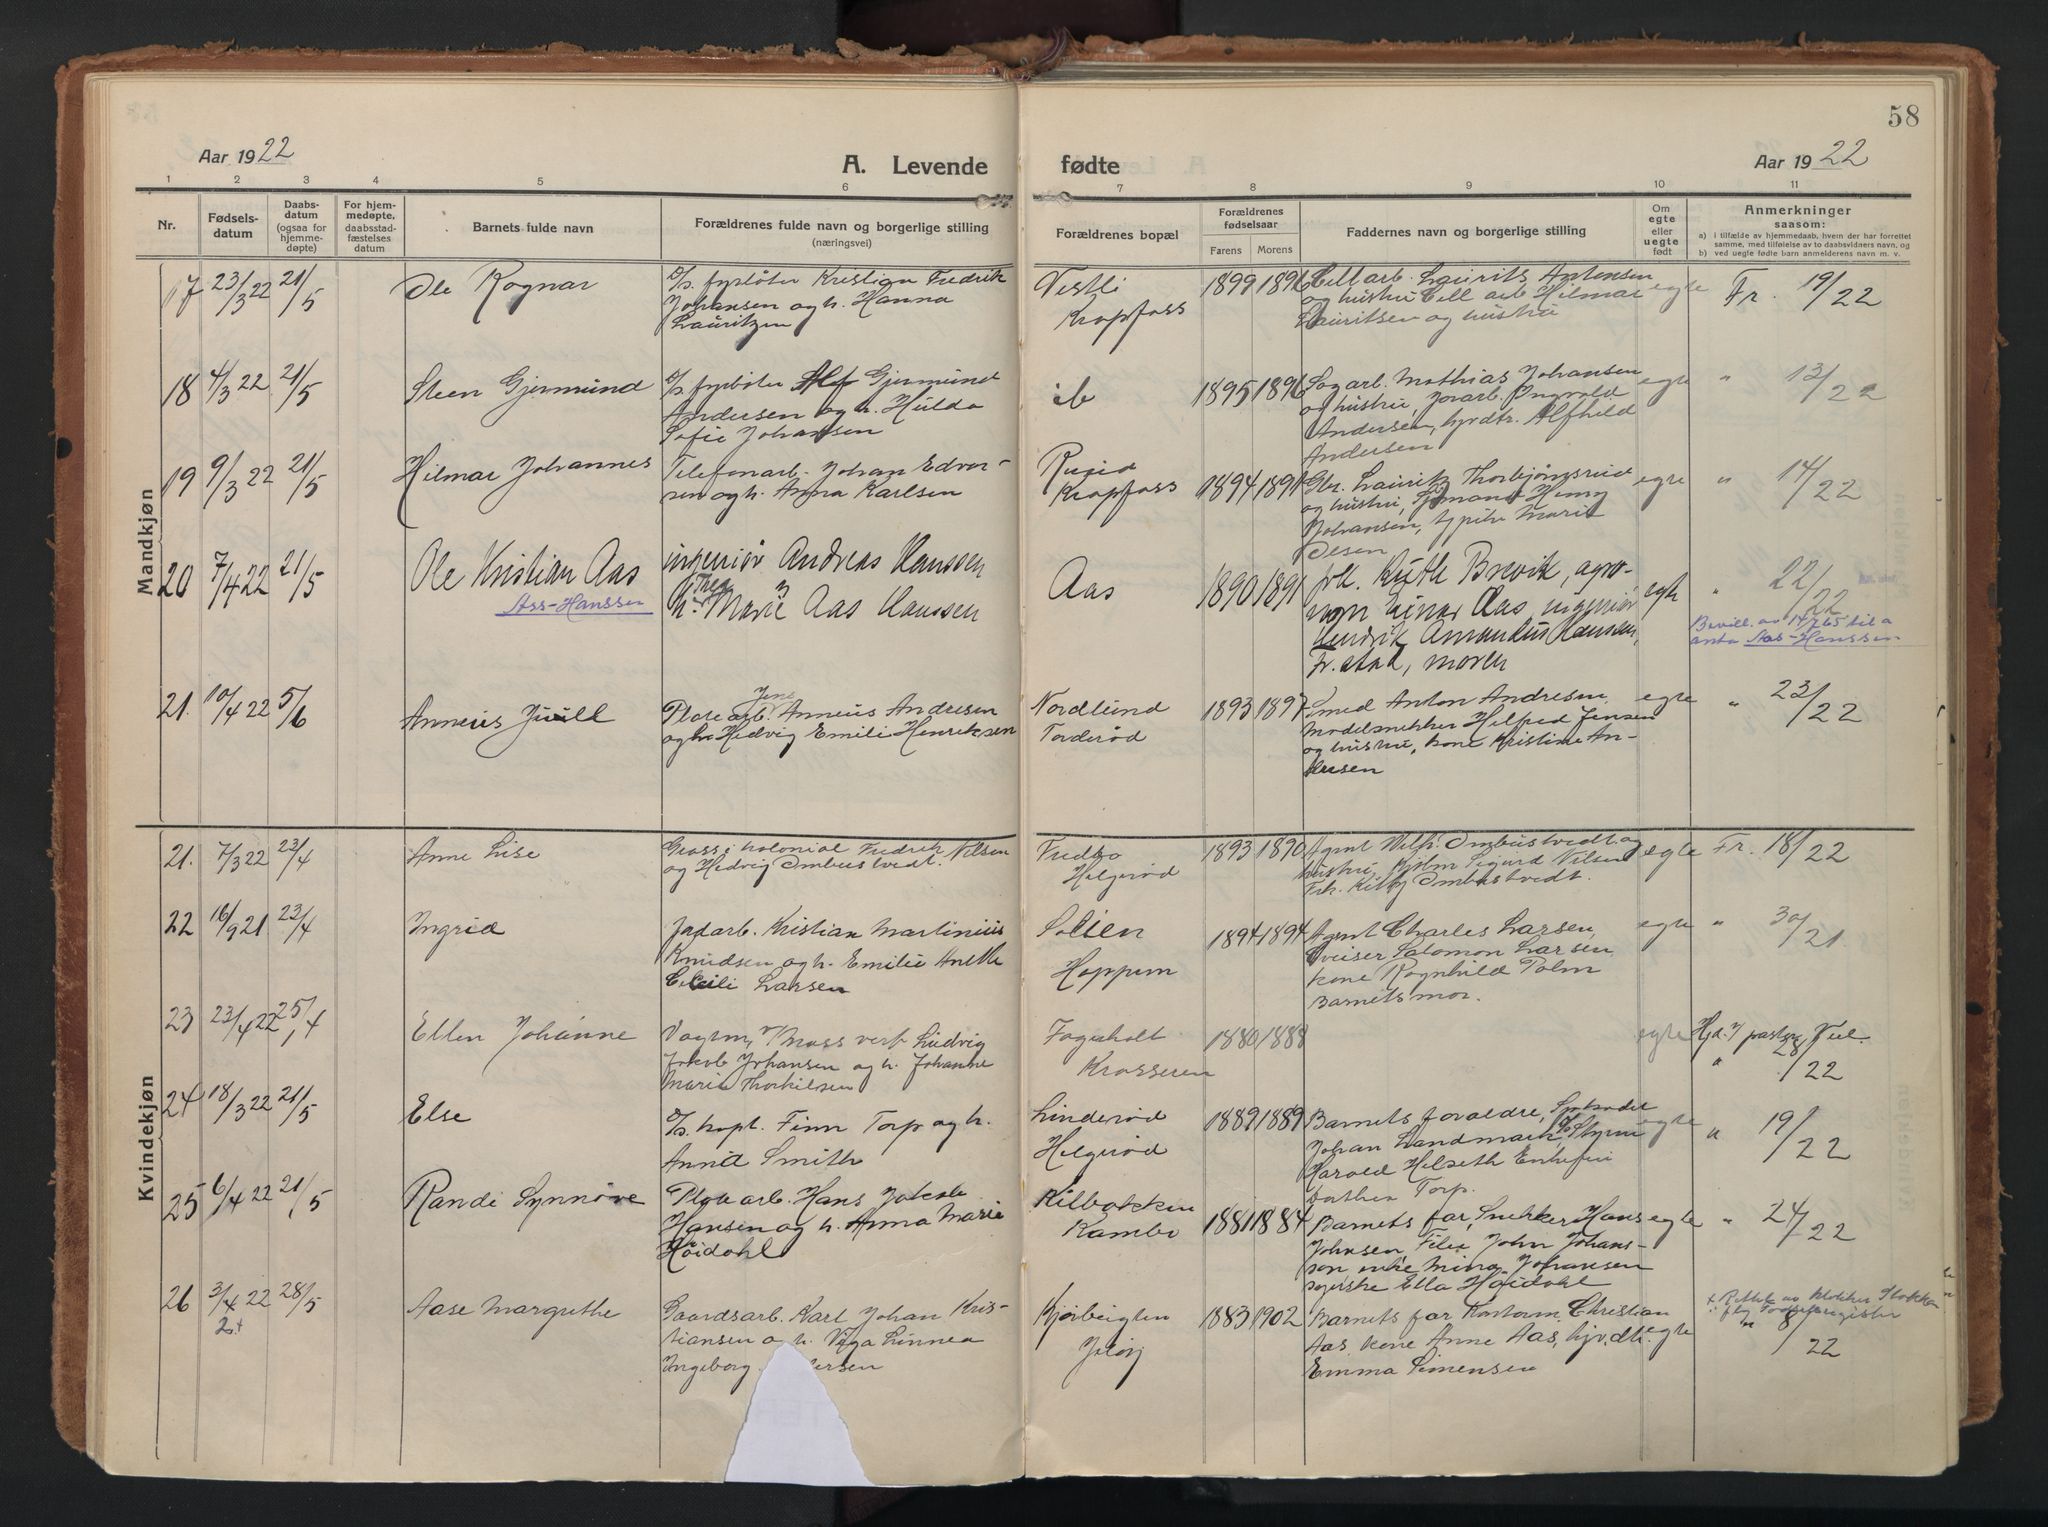 58
Aar 1922
A. Levende
fødte
Aar 1922
1 2 3 4 5 6 7 8 9 10 11
Nr.
Fødsels-
datum
Daabs-
datum
(ogsaa for
hjemme-
døpte)
For hjem-
medøpte,
daabsstad-
fæstelses
datum
Barnets fulde navn
Forældrenes fulde navn og borgerlige stilling
(næringsvei)
Forældrenes bopæl
Forældrenes
fødselsaar
Farens Morens
Faddernes navn og borgerlige stilling
Om
egte
eller
uegte
født
Anmerkninger
saasom:
a) i tilfælde av hjemmedaab, hvem der har forrettet
samme, med tilføielse av to daabsvidners navn, og
b) ved uegte fødte barn anmelderens navn m. v.
Mandkjøn
17 23/3 22 21/5 Ole Ragnar
D/s. fyrbøter Kristian Fredrik
Johansen og h. Hanna
Lauritzen
Vestli
Krapfoss
1899 1896
Cell arb. Laurits Antensen
og hustru Cell arb Hilmar
Lauritsen og hustru
egte Fr. 19/22
18 4/3 22 21/5 Steen Gjermund
D/s. fyrbøter Alf Gjermund
Andersen og h. Hulda
Sofie Johansen
ib
1895 1896
Sagarb. Mathias Johansen
og hustru, Jorarb. Ingvald
Andersen, hjvdtr. Alfhild
Andersen
egte " 13/22
19 9/3 22 21/5 Hilmar Johannes
Telefonarb. Johan Edvar-
sen og h. Anna Karlsen
Krapfoss
1894 1891
Gbr. Lauritz Thorbjørnsrud
og hustru, Henry
Johansen, Marie
Olsen
egte " 14/22
20 7/4 22 21/5 Ole Kristian Aas
Ass-Hanssen
ingeniør Andreas Hanssen
h. Thea Marie Aas Hanssen
Aas
1890 1891
frk. Ruth Brevik, agro-
nom Einar Aas, ingeniør
Hendrik Amandus Hansen,
Fr.stad, moren
egte " 22/22
Bevill. av 14/7 65 til a
anta Aas-Hanssen
21. 10/4 22 5/6 Anneus Juull
Plate arb. Jens Anneus Andresen
og h. Hedvig Emilie Henriksen
Nordlund
Torderød
1893 1897
Smed Anton Andresen
Modelsnekker Hilfred Jensen
og hustru, kone Kristine An-
dresen
egte " 23/22
Kvindekjøn
21. 7/3 22 23/4 Anne Lise
Gross i kolonial Fredrik Nilsen
og Hedvig Ombustvedt.
Fredbo
Helgerød
1893 1890
Agent Wilh. Ombustvedt og
hustru, Sigurd Nilsen
Frk. Kitty Ombustvedt.
egte Fr. 18/22
22 16/9 21 23/4 Ingrid
Jordarb. Kristian Martinius
Knudsen og h. Emilie Anethe
Cecili Larsen
Solien
Hoppern
1894 1894
Agent Charles Larsen,
Sveiser Salomon Larsen
kone Ragnhild Palm
Barnets mor.
egte " 30/21.
23 23/4 22 25/4 Ellen Johanne
Vagtm. v/ Moss verf Ludvig
Jakob Johansen og h. Johanne
Marie Thorkilsen
Fagerholt
Krosseren
1880 1888
egte Hjd. v/ pastor
" 28/22
24 18/3 22 21/5 Else
D/s. kapt. Finn Torp og h.
Annie Smith
Linderød
Helgerød
1889 1889
Barnets forældre,
Johan Landmark,
Harald Helseth Enkefru
Torp.
egte " 19/22
25 6/4 22 21/5 Randi Synnøve
Plate arb. Hans Jakob
Hansen og h. Anna Marie
Høidahl
Kilbakken
Kambo
1881 1884
Barnets far, Snekker Hans
Johnsen, Filer John Johans-
son enke Mina Johansen
Ella Høidahl
egte " 24/22
26 3/4 22 28/5 Aase Margrethe
Gaardsarb. Karl Johan Kris-
tiansen og h. Viga Linnea
Ingeborg
Jeløy
1883 1902
Barnets far Christian
Aas, kone Anne Aas, hjv.dtr.
Emma Simensen
egte
" 8/22